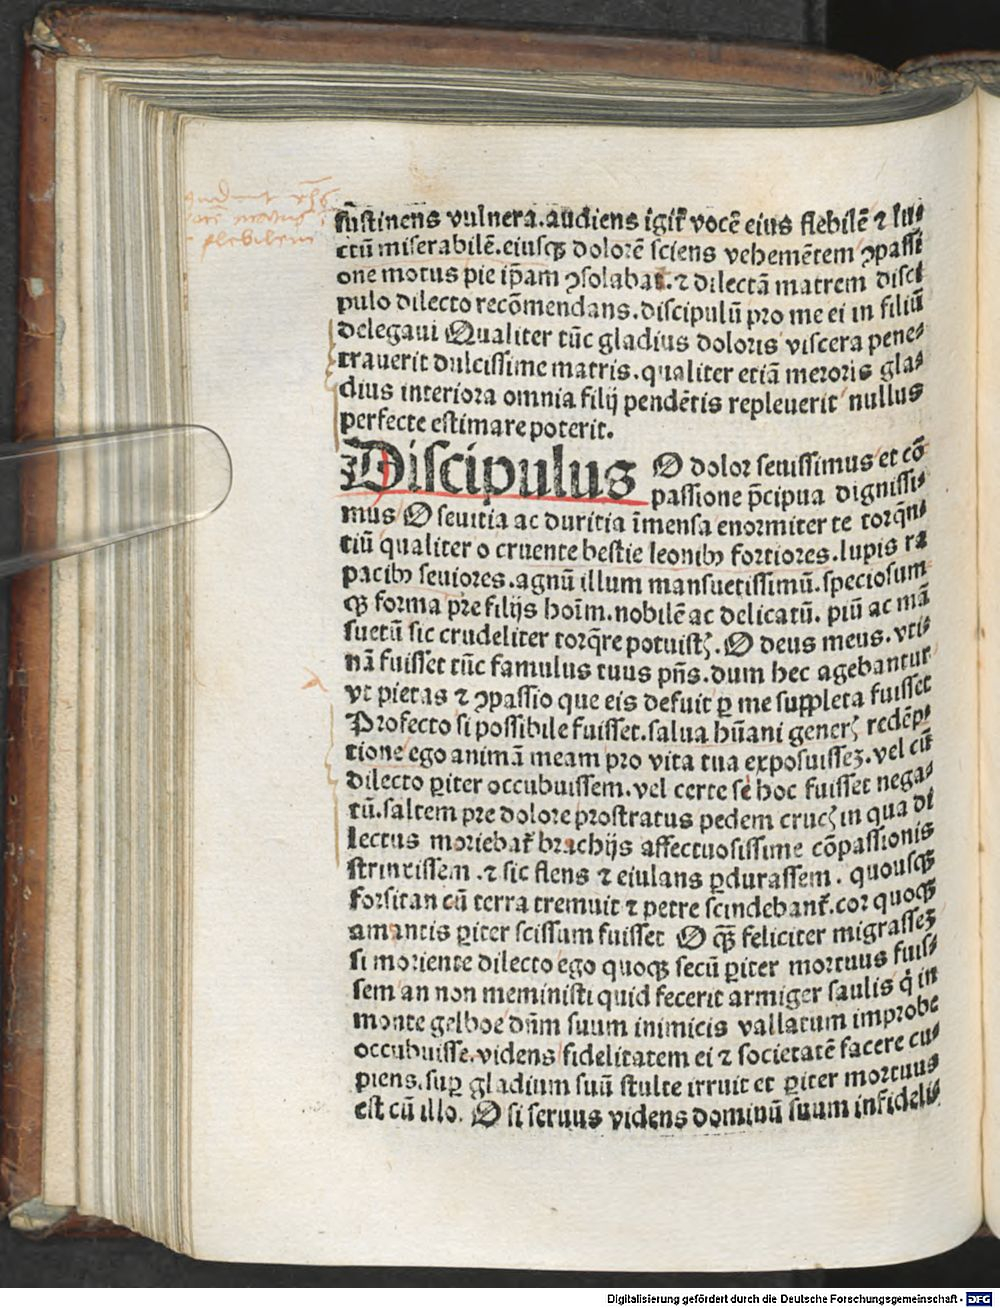 audivit xps
voce matris
flebilem
sustinens vulnera.audiens igit᷑ vocē eius flebilē ⁊ lu⸗
ctū miserabilē.eiusqꝫ dolorē sciens vehemētem ꝯpassi
one motus pie ip̄am ꝯsolabar.⁊ dilectā matrem disci
pulo dilecto recōmendans.discipulū pro me ei in filiū
delegaui Qualiter tūc gladius doloris viscera pene⸗
trauerit dulcissime matris.qualiter etiā meroris gla⸗
dius interiora omnia filij pendētis repleuerit nullus
perfecte estimare poterit.
Discipulus O dolor seuissimus et cō
passione p̄cipua dignissi⸗
mus O seuitia ac duritia īmensa enormiter te torq̄n⸗
tiū qualiter o cruente bestie leonibꝫ fortiores.lupis ra
pacibꝫ seuiores.agnū illum mansuetissimū.speciosum
qꝫ forma pre filijs hoīm.nobilē ac delicatū. piū ac mā
suetū sic crudeliter torq̄re potuistꝭ. O deus meus. vti⸗
nā fuisset tūc famulus tuus pn̄s. dum hec agebantur
vt pietas ⁊ ꝯpassio que eis defuit ꝑ me suppleta fuisset
Profecto si possibile fuisset.salua hūani generꝭ redēp⸗
tione ego animā meam pro vita tua exposuisseꝫ.vel cū
dilecto ꝑiter occubuissem.vel certe si hoc fuisset nega⸗
tū.saltem pre dolore prostratus pedem crucꝭ in qua di
lectus moriebat᷑ brachijs affectuosissime cōpassionis
strinxissem .⁊ sic flens ⁊ eiulans ꝑdurassem . quousqꝫ
forsitan cū terra tremuit ⁊ petre scindebant᷑.cor quoqꝫ
amantis ꝑiter scissum fuisset O qꝫ̄ feliciter migrasseꝫ
si moriente dilecto ego quoqꝫ secū ꝑiter mortuus fuis⸗
sem an non meministi quid fecerit armiger saulis q̇ in
monte gelboe dn̄m suum inimicis vallatum improbe
occubuisse.videns fidelitatem ei ⁊ societatē facere cu⸗
piens.suꝑ gladium suū stulte irruit et ꝑiter mortuus
est cū illo. O si seruus videns dominū suum infidelis
Digitalisierung gefördert durch die Deutsche Forschungsgemeinschaft - DFG